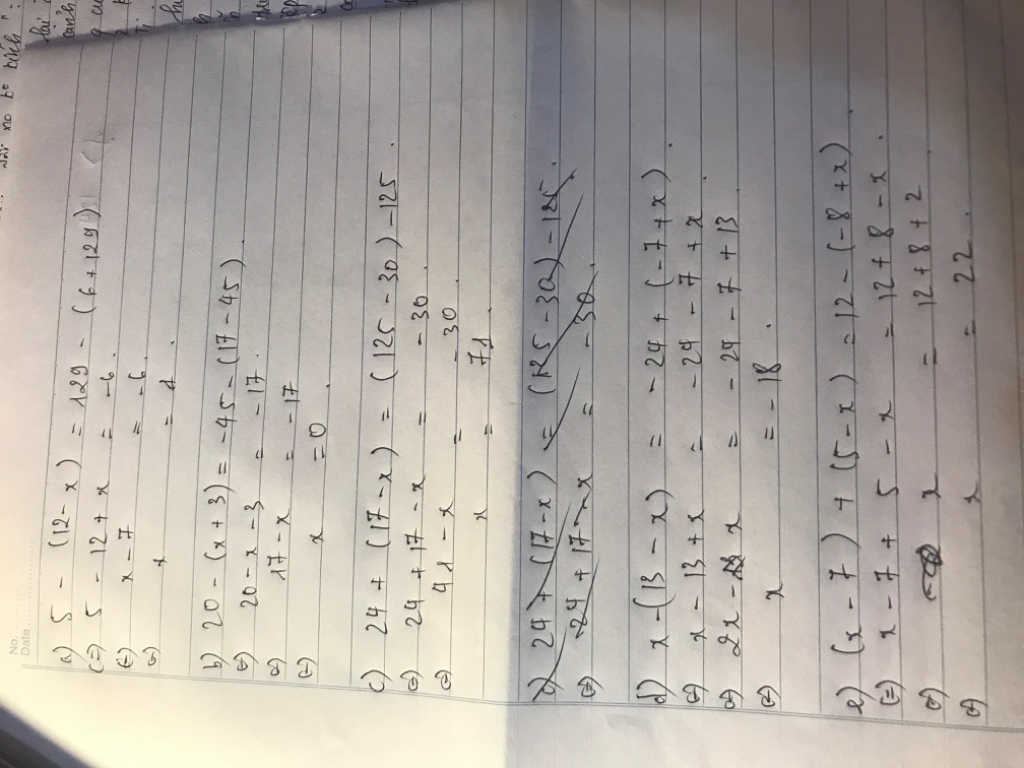 No.
Date
a) 5 - (12 - x) = 129 - (6 + 129)
(=) 5 - 12 + x = -6.
(=) x - 7 = -6
(=) x = 1
b) 20 - (x + 3) = -45 - (17 - 45)
(=) 20 - x - 3 = -17.
(=) 17 - x = -17
(=) x = 0.
c) 24 + (17 - x) = (125 - 30) - 125.
(=) 24 + 17 - x = -30.
(=) 41 - x = -30.
x = 71
c) 24 + (17 - x) = (125 - 30) - 125.
(=) 24 + 17 - x = -30.
d) x - (13 - x) = -24 + (-7 + x)
(=) x - 13 + x = -24 - 7 + x.
(=) 2x - x = -24 - 7 + 13
(=) x = -18.
e) (x - 7) + (5 - x) = 12 - (-8 + x)
(=) x - 7 + 5 - x = 12 + 8 - x.
(=) x = 12 + 8 + 2
(=) x = 22.